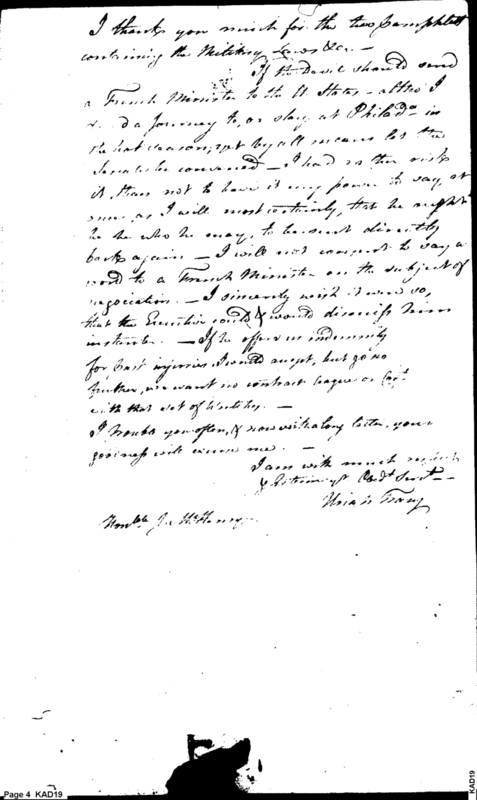 I thank you much for the two Pamphlets
containing the Military Laws &c. —
If the Devil should send
a French Minister to the U States — altho I
d a Journey to, or stay at Philada in
the hot season, yet by all means let the
Senate be convened — I had rather risk
it, than not to have it in my power to say, at
once, as I will most certainly, that he ought
be he who he may, to be sent directly
back again — I will not consent to say a
word to a French Minister on the subject of
negociation. — I sincerely wish it were so,
that the Executive could & would dismiss him
instanter. — If he offers us indemnity
for past injuries I would accept, but go no
further, we want no contract league or
with that set of —
I trouble you often, & now with a long letter, your
goodness will excuse me. —
I am with much respect
& Esteem yr Obdt Servt —
Uriah Tracy
Honble Js McHenry
Page 4 KAD19
KAD19